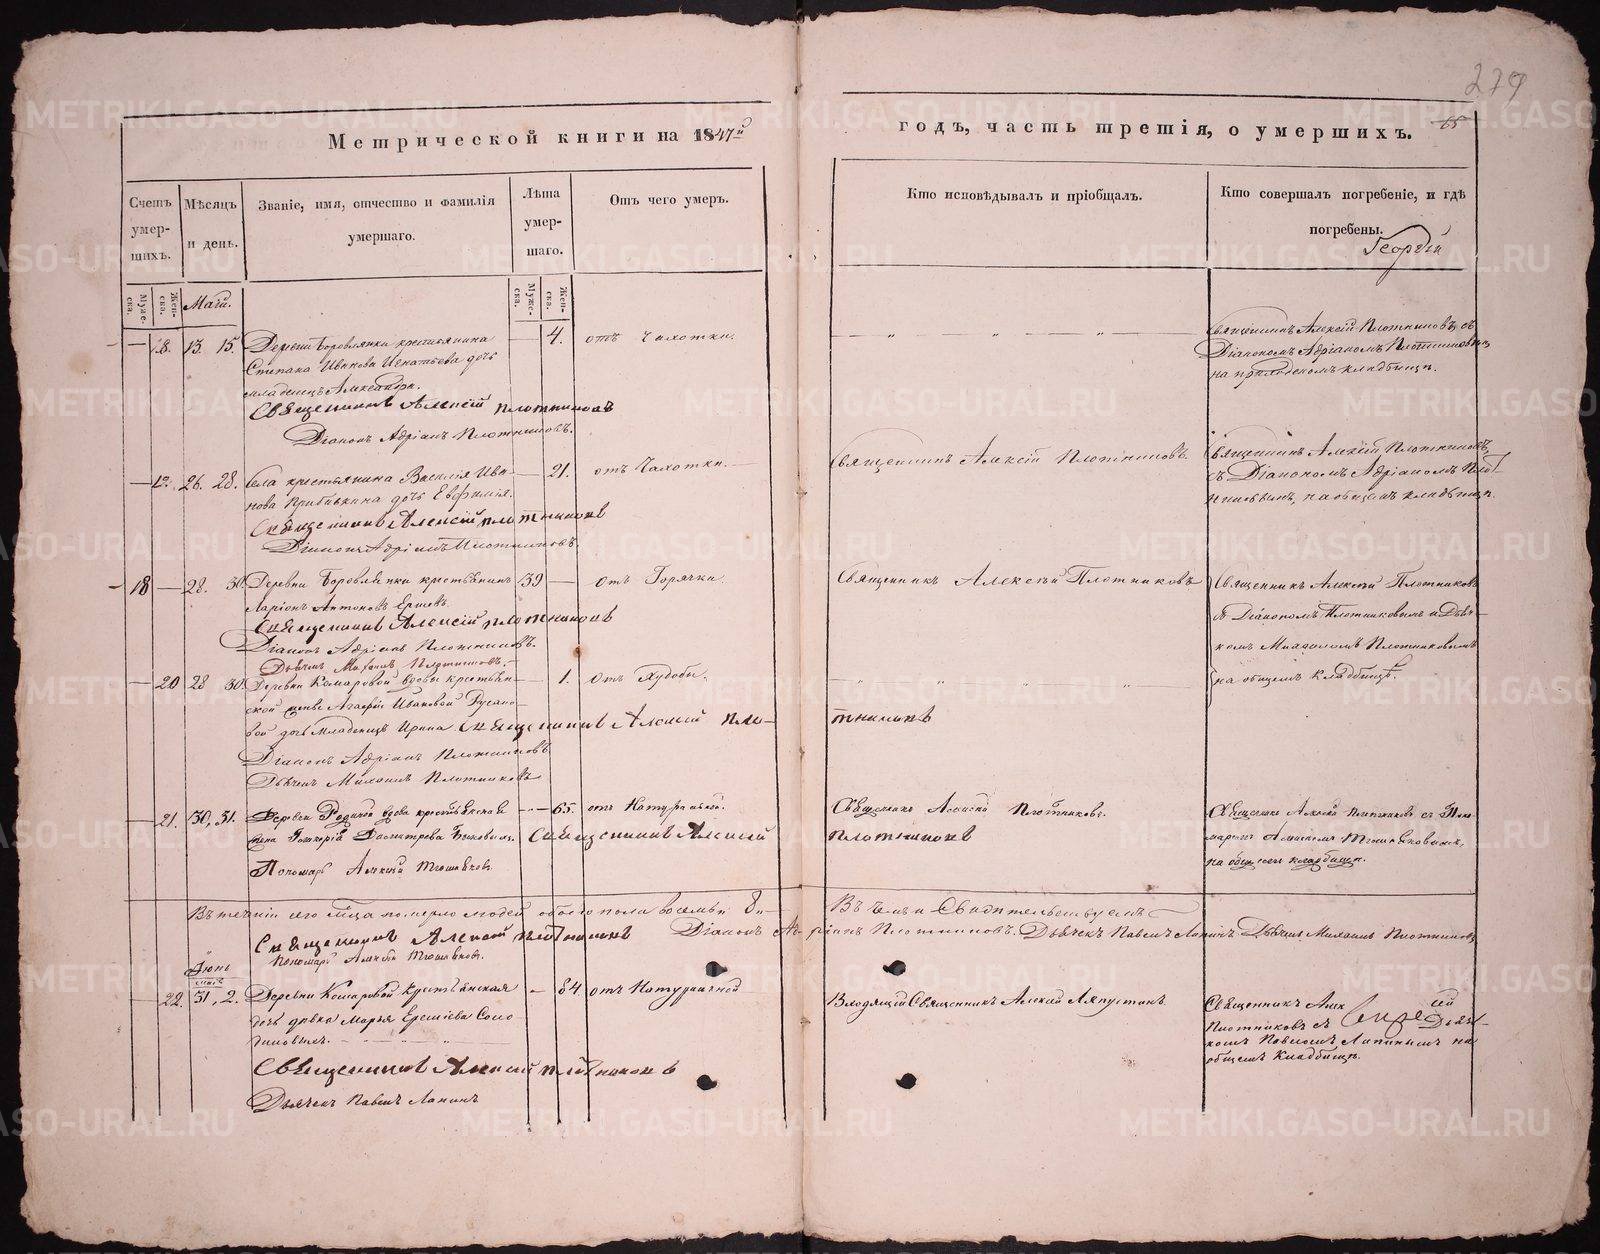 279
Метрической книги на 1847й
годъ, часть третія, о умершихъ.
15
Счетъ умер-шихъ.
Мѣсяцъ и день.
Званіе, имя, отчество и фамилія умершаго.
Лѣта умер-шаго.
Отъ чего умеръ.
Кто исповѣдывалъ и пріобщалъ.
Кто совершалъ погребеніе, и гдѣ погребены.
Георгій
Муже-ска.
Жен-ска.
Маій.
Муже-ска.
Жен-ска.
— 18. 13. 15. Деревни Боровлянки крестьянина — 4. отъ Чахотки.
Степана Иванова Игнатьева дочь
младенецъ Александра.
Священникъ Алексій Плотниковъ
Діаконъ Адріанъ Плотниковъ.
Священникъ Алексій Плотниковъ съ
Діакономъ Адріаномъ Плотниковымъ
на приходскомъ кладбищѣ.
— 26. 28. Села крестьянина Василія Ива- — 21. отъ Чахотки.
нова дочь Евфимія.
Священникъ Алексій Плотниковъ
Діаконъ Адріанъ Плотниковъ.
Священникъ Алексій Плотниковъ.
Священникъ Алексій Плотниковъ,
съ Діакономъ Адріаномъ Плот-
никовымъ, на общемъ кладбищѣ.
18 — 28. 30. Деревни Боровлянки крестьянинъ 39 — отъ Горячки
Ларіонъ Антоновъ Ершевъ.
Священникъ Алексій Плотниковъ
Діаконъ Адріанъ Плотниковъ.
Дьячекъ Михаилъ Плотниковъ.
Священникъ Алексѣй Плотниковъ
Священникъ Алексѣй Плотниковъ
съ Діакономъ Плотниковымъ и Дьяч-
комъ Михаиломъ Плотниковымъ
на общемъ кладбищѣ.
— 20 28 30. Деревни Комаровой вдовы крестьян- — 1. отъ Худобы.
ской жены Агафіи Ивановой Русано-
вой дочь младенецъ Ирина Священникъ Алексій Пло-
тниковъ
Діаконъ Адріанъ Плотниковъ
Дьячекъ Михаилъ Плотниковъ
— 21. 30, 31. Деревни вдова крестьянская — 65. отъ Натуральной.
жена Дмитрева Священникъ Алексій
Плотниковъ
Пономарь Алексѣй
Священникъ Алексѣй Плотниковъ.
Священникъ Алексѣй Плотниковъ съ Поно-
маремъ Алексѣемъ
на общемъ кладбищѣ.
Въ теченіи сего м҃ца померло людей обоего пола восемь 8.
Въ чемъ и Свидѣтельствуемъ
Священникъ Алексій Плотниковъ Діаконъ Ад-
ріанъ Плотниковъ. Дьячекъ Павелъ Лапинъ Дьячекъ Михаилъ Плотниковъ
Пономарь Алексѣй
Іюнь
— 22 31, 2. Деревни Комаровой крестьянская — 84 отъ Натуральной
дочь дѣвка Марья Еремѣева Соло-
Священникъ Алексій Плотниковъ
Дьячекъ Павелъ Лапинъ
Входящій Священникъ Алексѣй Ляпустинъ
Священникъ Алек сѣй
Плотниковъ съ Дьяч-
комъ Павломъ Лапинымъ на
общемъ Кладбищѣ.
METRIKI.GASO-URAL.RU